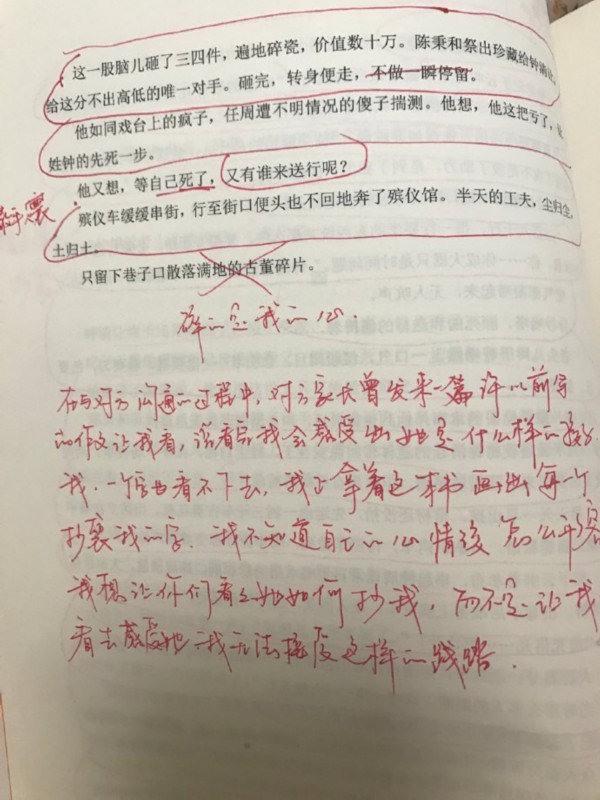 这一股脑儿砸了三四件，遍地碎瓷，价值数十万。陈秉和祭出珍藏给钟
给这分不出高低的唯一对手。砸完，转身便走，不做一瞬停留。
他如同戏台上的疯子，任周遭不明情况的傻子揣测。他想，他这把亏了，让
姓钟的先死一步。
他又想，等自己死了，又有谁来送行呢？
殡仪车缓缓串街，行至街口便头也不回地奔了殡仪馆。半天的工夫，尘归尘，
土归土。
只留下巷子口散落满地的古董碎片。
碎的是我的心.
在与对方沟通的过程中，对方家长曾发来一篇许以前写
的作文让我看，说看完我会感受出她是什么样的孩子
我.一个字也看不下去，我正拿着这本书画出每个
抄袭我的字.我不知道自己的心情该怎么形容
我想让你们看看她如何抄我，而不是让我
看去感受她 我无法接受这样的践踏.